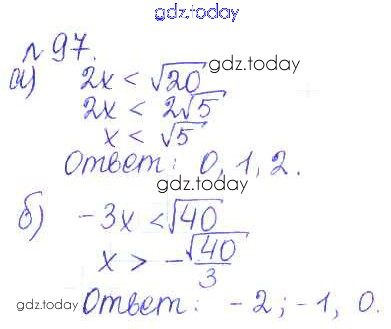 gdz.today
№97.
а) 2x < √20 gdz.today
2x < 2√5
x < √5
Ответ: 0, 1, 2.
gdz.today
б) -3x < √40
x > -√40/3 gdz.today
gdz.today Ответ: -2; -1, 0.